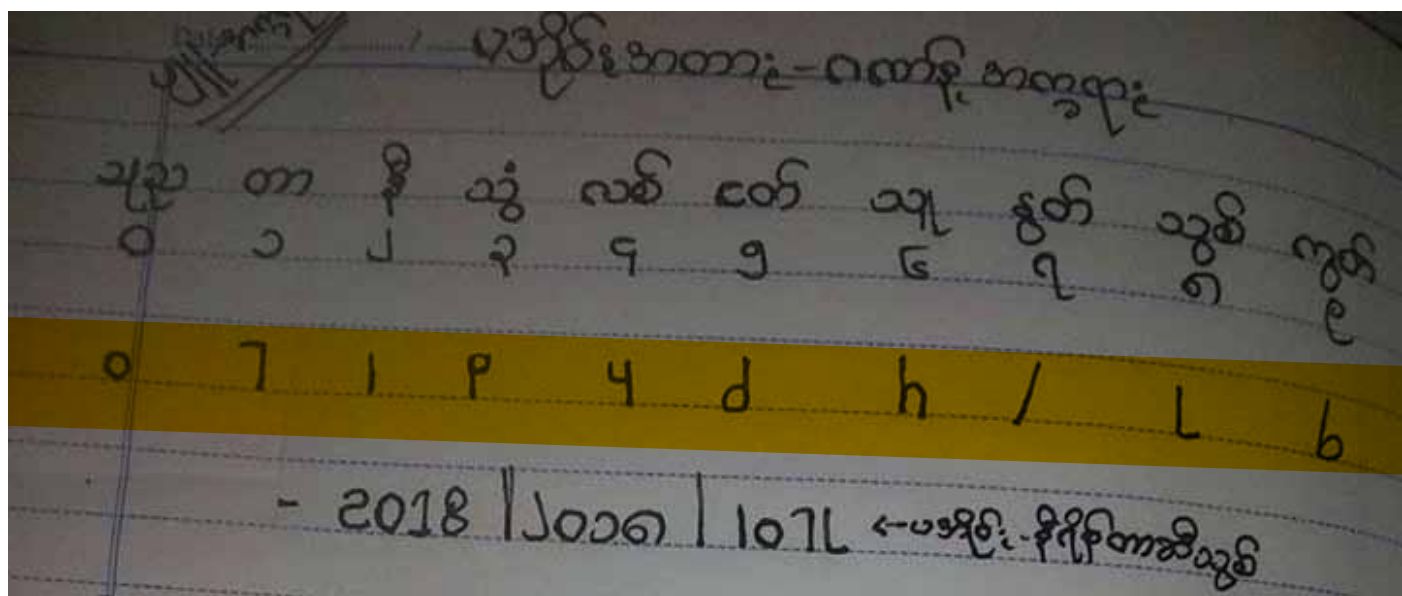 ပအိုဝ်းအတား-ဂဏာန်နုအက္ခရား
သုည တာ နီ သွံ လစ် ငတ် သု နွတ် သွစ် ကွတ်
၀ ၁ ၂ ၃ ၄ ၅ ၆ ၇ ၈ ၉
o 7 l p 4 d h / L b
- 2018 | ၂၀၁၈ | lo7L ←ပအိုဝ်း-